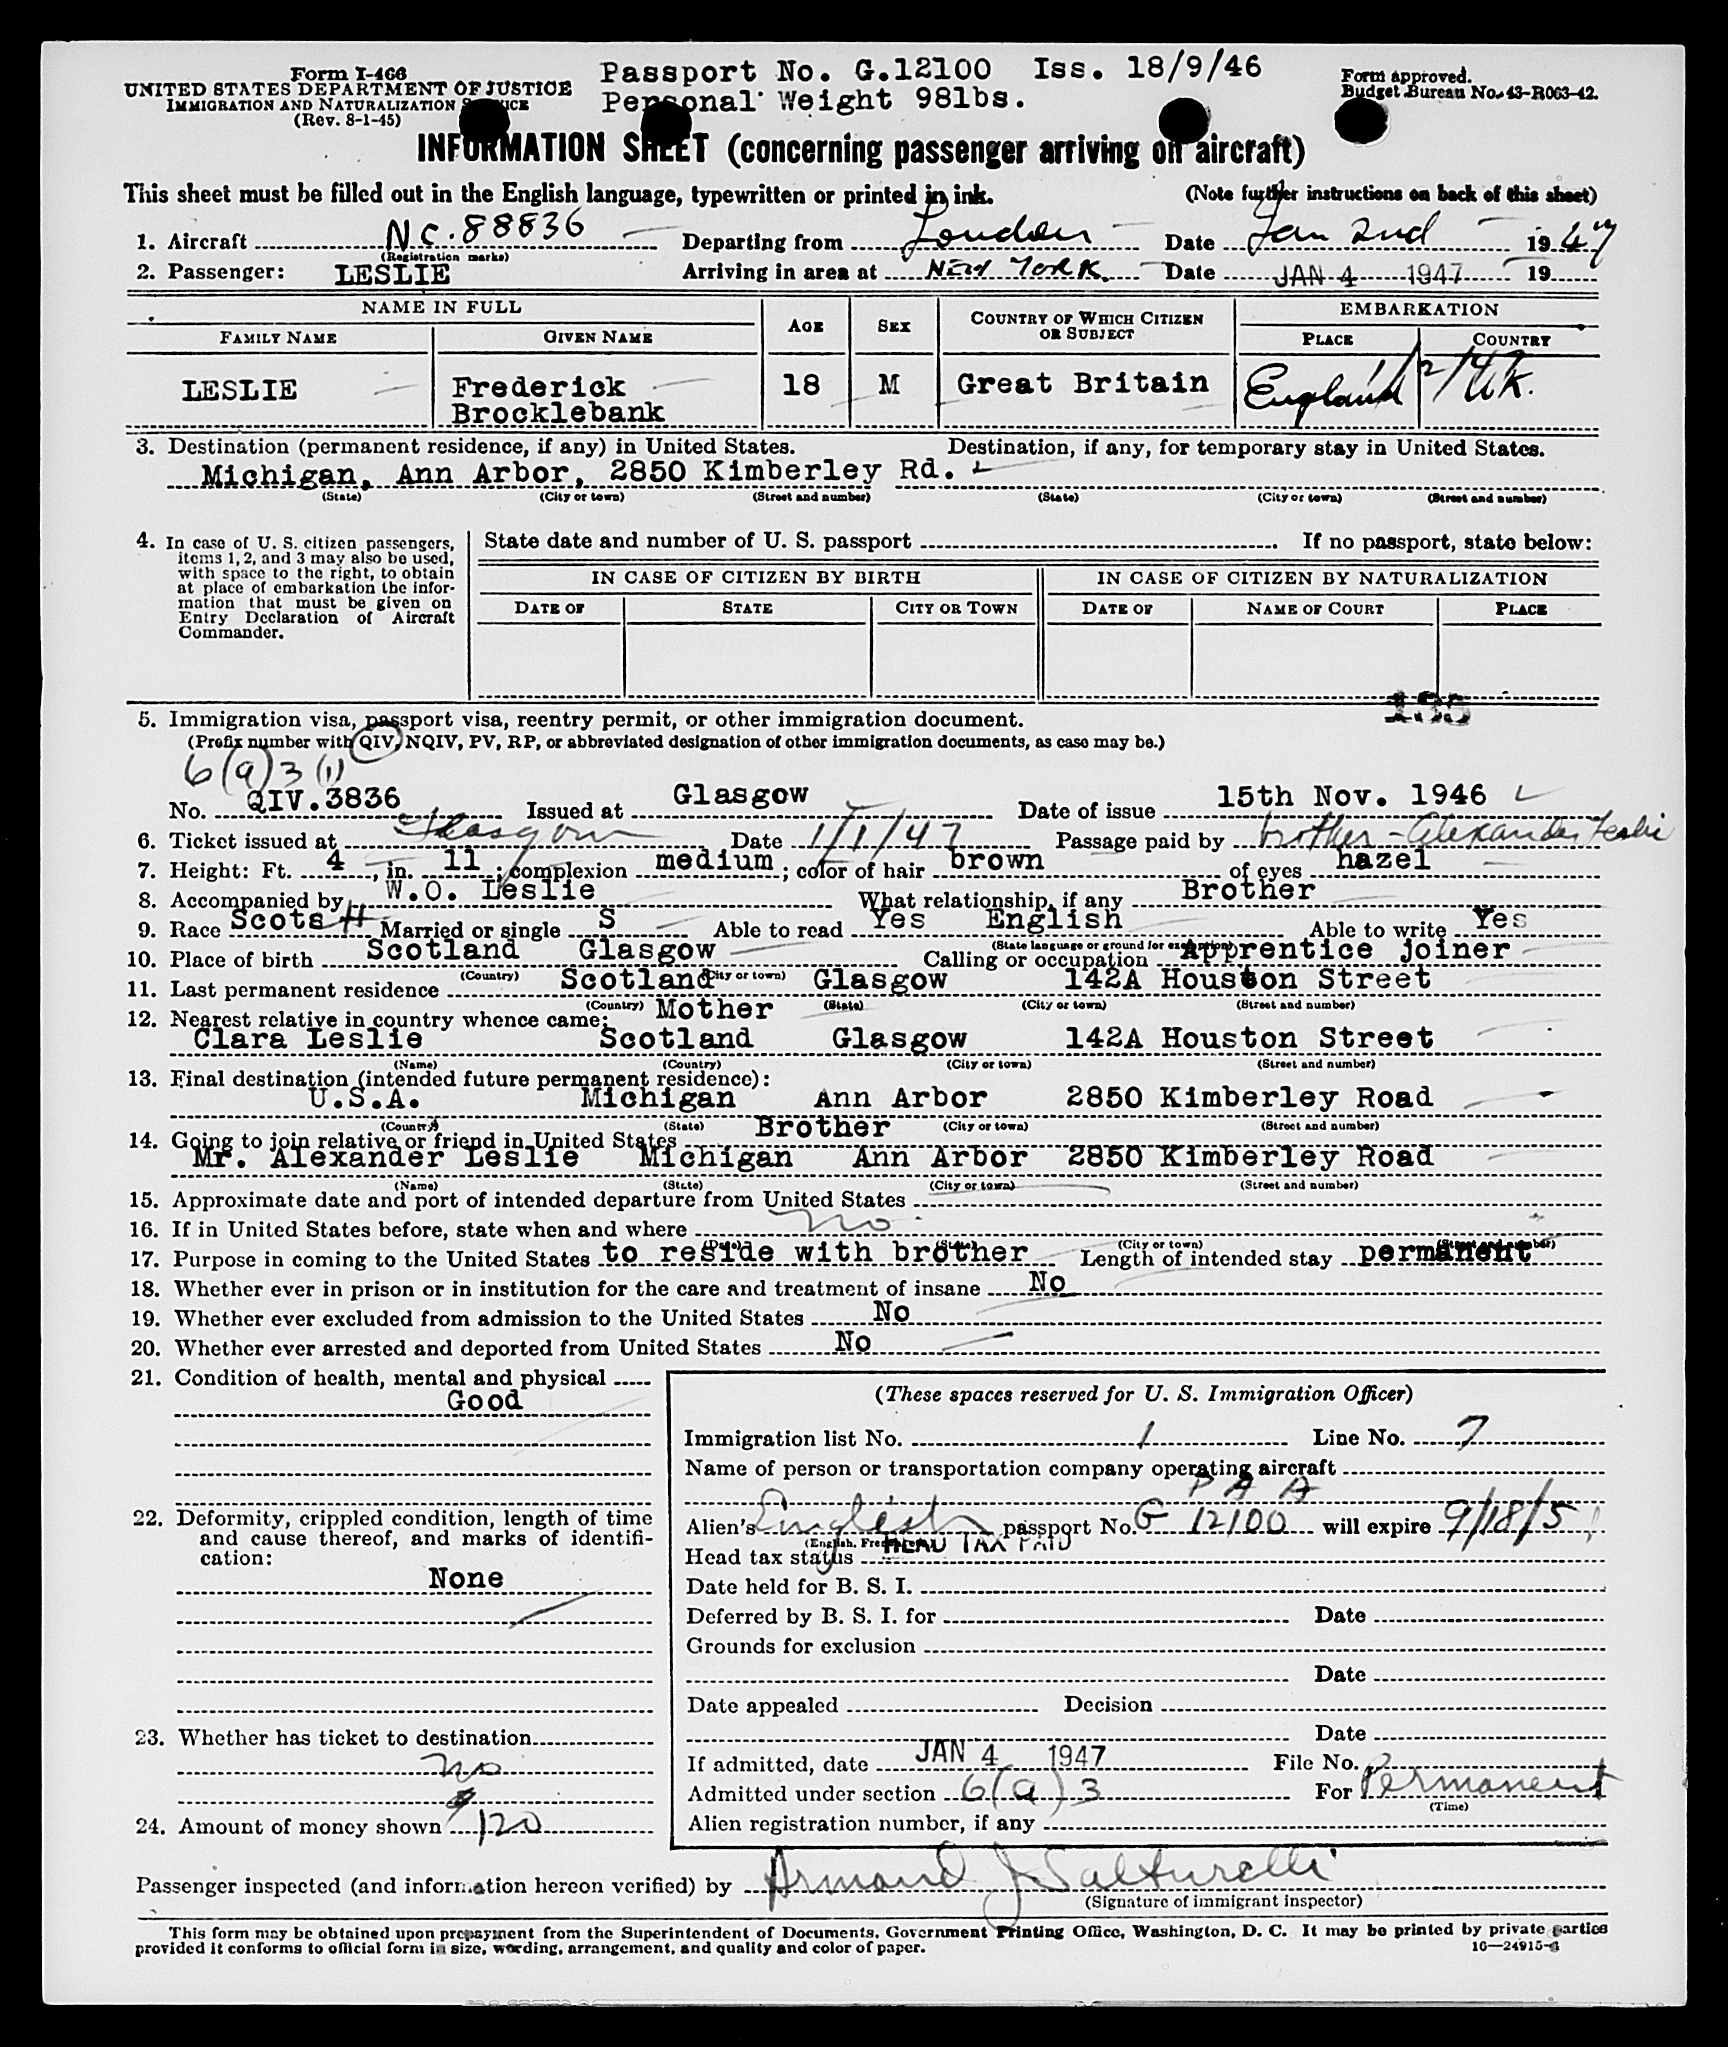 Form I-466
UNITED STATES DEPARTMENT OF JUSTICE
IMMIGRATION AND NATURALIZATION SERVICE
(Rev. 8-1-45)
Passport No. G.12100 Iss. 18/9/46
Personal Weight 98lbs.
Form approved.
Budget Bureau No. 43-R063-42.
INFORMATION SHEET (concerning passenger arriving on aircraft)
This sheet must be filled out in the English language, typewritten or printed in ink. (Note further instructions on back of this sheet)
1. Aircraft NC.88836 Departing from London Date Jan 2nd 1947
(Registration marks)
2. Passenger: LESLIE Arriving in area at NEW YORK Date JAN 4 1947 19
NAME IN FULL AGE SEX COUNTRY OF WHICH CITIZEN OR SUBJECT EMBARKATION
FAMILY NAME GIVEN NAME PLACE COUNTRY
LESLIE Frederick Brocklebank 18 M Great Britain England UK. 1/2/47
3. Destination (permanent residence, if any) in United States. Destination, if any, for temporary stay in United States.
Michigan, Ann Arbor, 2850 Kimberley Rd.
(State) (City or town) (Street and number) (State) (City or town) (Street and number)
4. In case of U. S. citizen passengers, items 1, 2, and 3 may also be used, with space to the right, to obtain at place of embarkation the information that must be given on Entry Declaration of Aircraft Commander.
State date and number of U. S. passport If no passport, state below:
IN CASE OF CITIZEN BY BIRTH IN CASE OF CITIZEN BY NATURALIZATION
DATE OF STATE CITY OR TOWN DATE OF NAME OF COURT PLACE
5. Immigration visa, passport visa, reentry permit, or other immigration document.
(Prefix number with QIV, NQIV, PV, RP, or abbreviated designation of other immigration documents, as case may be.)
6(a)3(1)
No. QIV.3836 Issued at Glasgow Date of issue 15th Nov. 1946
6. Ticket issued at Glasgow Date 1/1/47 Passage paid by brother - Alexander Leslie
7. Height: Ft. 4, in. 11; complexion medium; color of hair brown of eyes hazel
8. Accompanied by W.O. Leslie What relationship, if any Brother
9. Race Scots H Married or single S Able to read Yes English Able to write Yes
(State language or ground for exemption)
10. Place of birth Scotland Glasgow Calling or occupation Apprentice joiner
(Country) (City or town)
11. Last permanent residence Scotland Glasgow 142A Houston Street
(Country) (State) (City or town) (Street and number)
12. Nearest relative in country whence came: Mother
Clara Leslie Scotland Glasgow 142A Houston Street
(Name) (Country) (City or town) (Street and number)
13. Final destination (intended future permanent residence):
U.S.A. Michigan Ann Arbor 2850 Kimberley Road
(Country) (State) (City or town) (Street and number)
14. Going to join relative or friend in United States Brother
Mr. Alexander Leslie Michigan Ann Arbor 2850 Kimberley Road
(Name) (State) (City or town) (Street and number)
15. Approximate date and port of intended departure from United States
16. If in United States before, state when and where no
(Date) (State) (City or town) (Street and number)
17. Purpose in coming to the United States to reside with brother Length of intended stay permanent
18. Whether ever in prison or in institution for the care and treatment of insane No
19. Whether ever excluded from admission to the United States No
20. Whether ever arrested and deported from United States No
21. Condition of health, mental and physical
Good
22. Deformity, crippled condition, length of time and cause thereof, and marks of identification:
None
23. Whether has ticket to destination
no
24. Amount of money shown $120
(These spaces reserved for U. S. Immigration Officer)
Immigration list No. 1 Line No. 7
Name of person or transportation company operating aircraft
P A A
Alien's English passport No. G 12100 will expire 9/18/51
Head tax status HEAD TAX PAID
Date held for B. S. I.
Deferred by B. S. I. for Date
Grounds for exclusion
Date
Date appealed Decision
Date
If admitted, date JAN 4 1947 File No.
Admitted under section 6(a)3 For Permanent
(Time)
Alien registration number, if any
Passenger inspected (and information hereon verified) by Armand J Salturelli
(Signature of immigrant inspector)
This form may be obtained upon prepayment from the Superintendent of Documents, Government Printing Office, Washington, D. C. It may be printed by private parties
provided it conforms to official form in size, wording, arrangement, and quality and color of paper. 16—24915-1